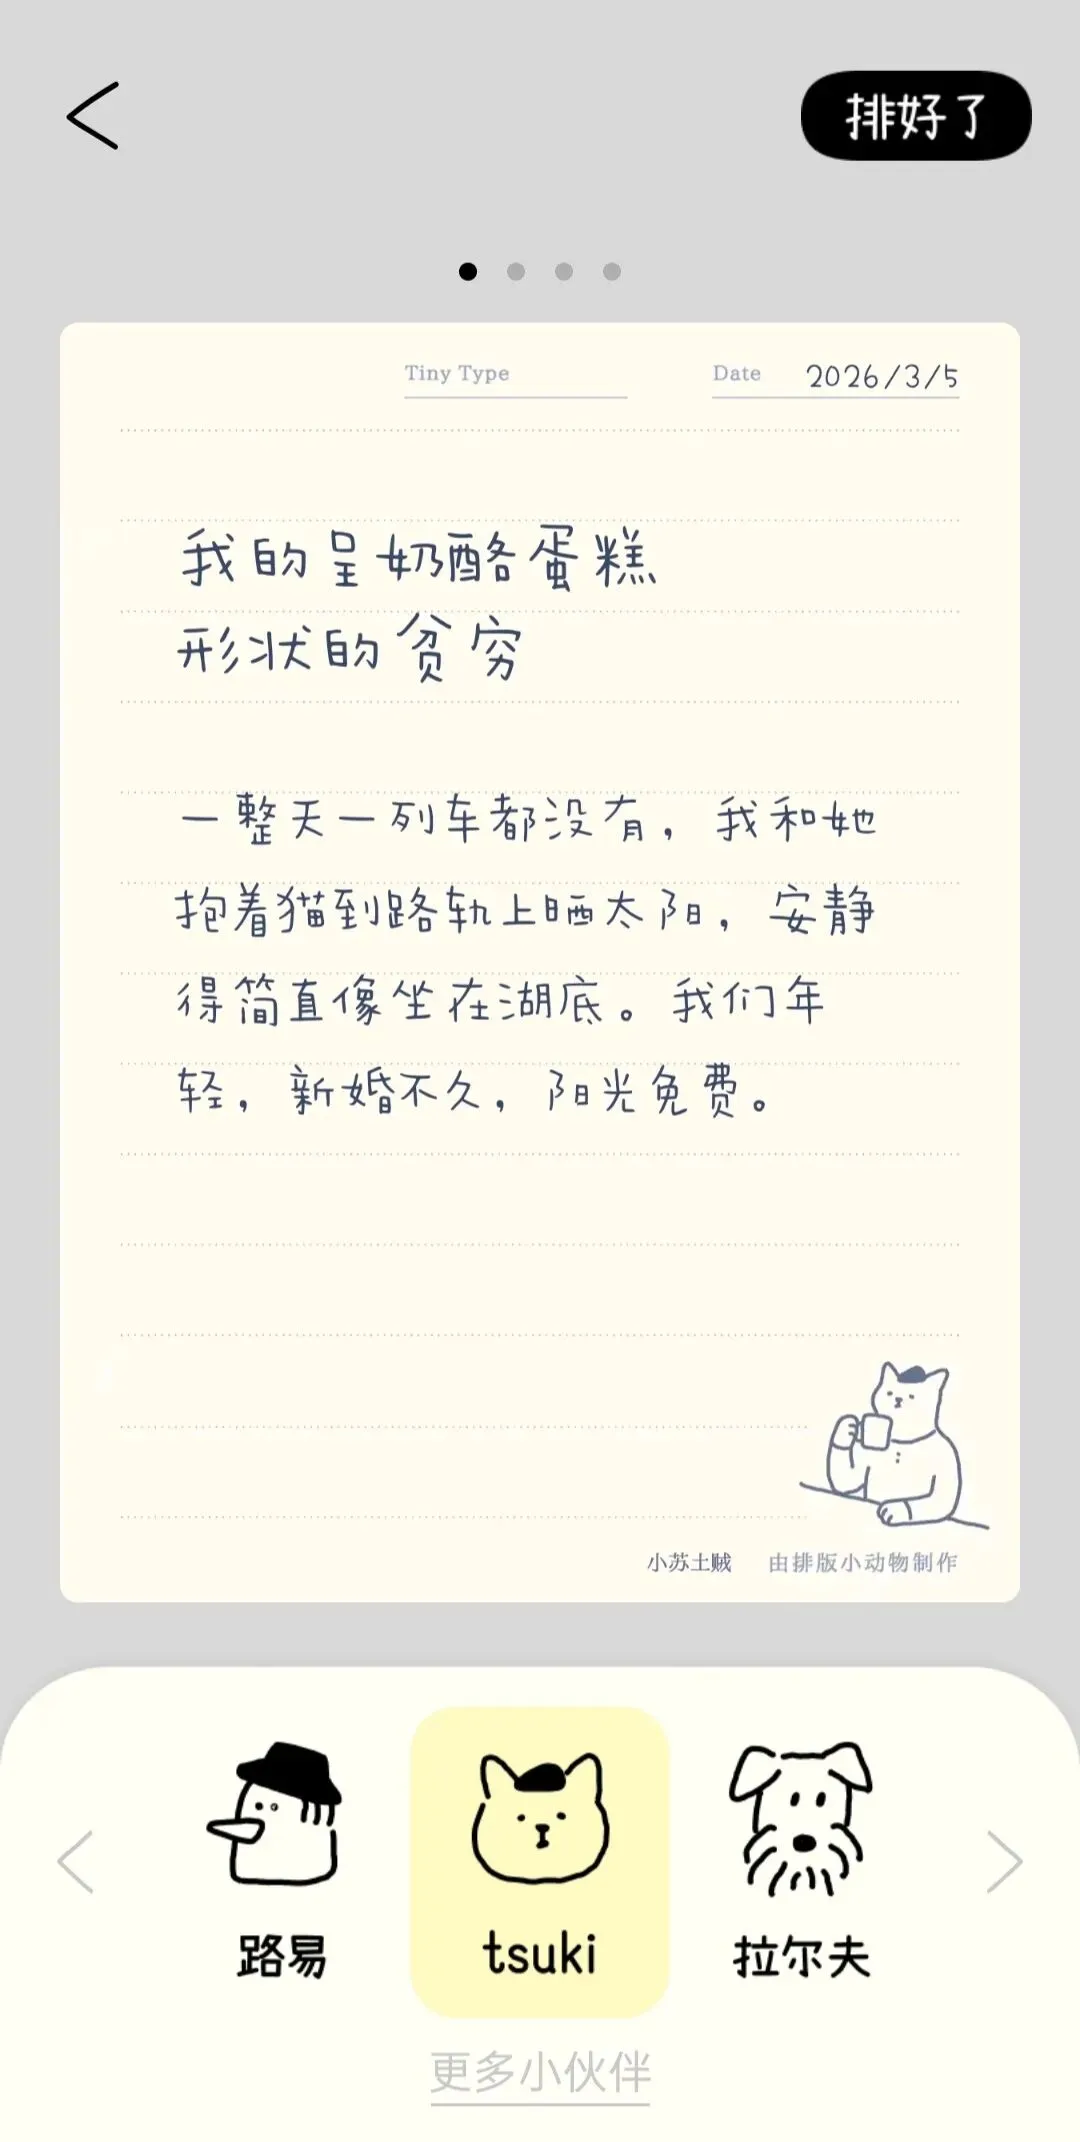 排好了
Tiny Type
Date 2026/3/5
我的呈奶酪蛋糕
形状的贫穷
一整天一列车都没有，我和她
抱着猫到路轨上晒太阳，安静
得简直像坐在湖底。我们年
轻，新婚不久，阳光免费。
小苏土贼 由排版小动物制作
路易
tsuki
拉尔夫
更多小伙伴